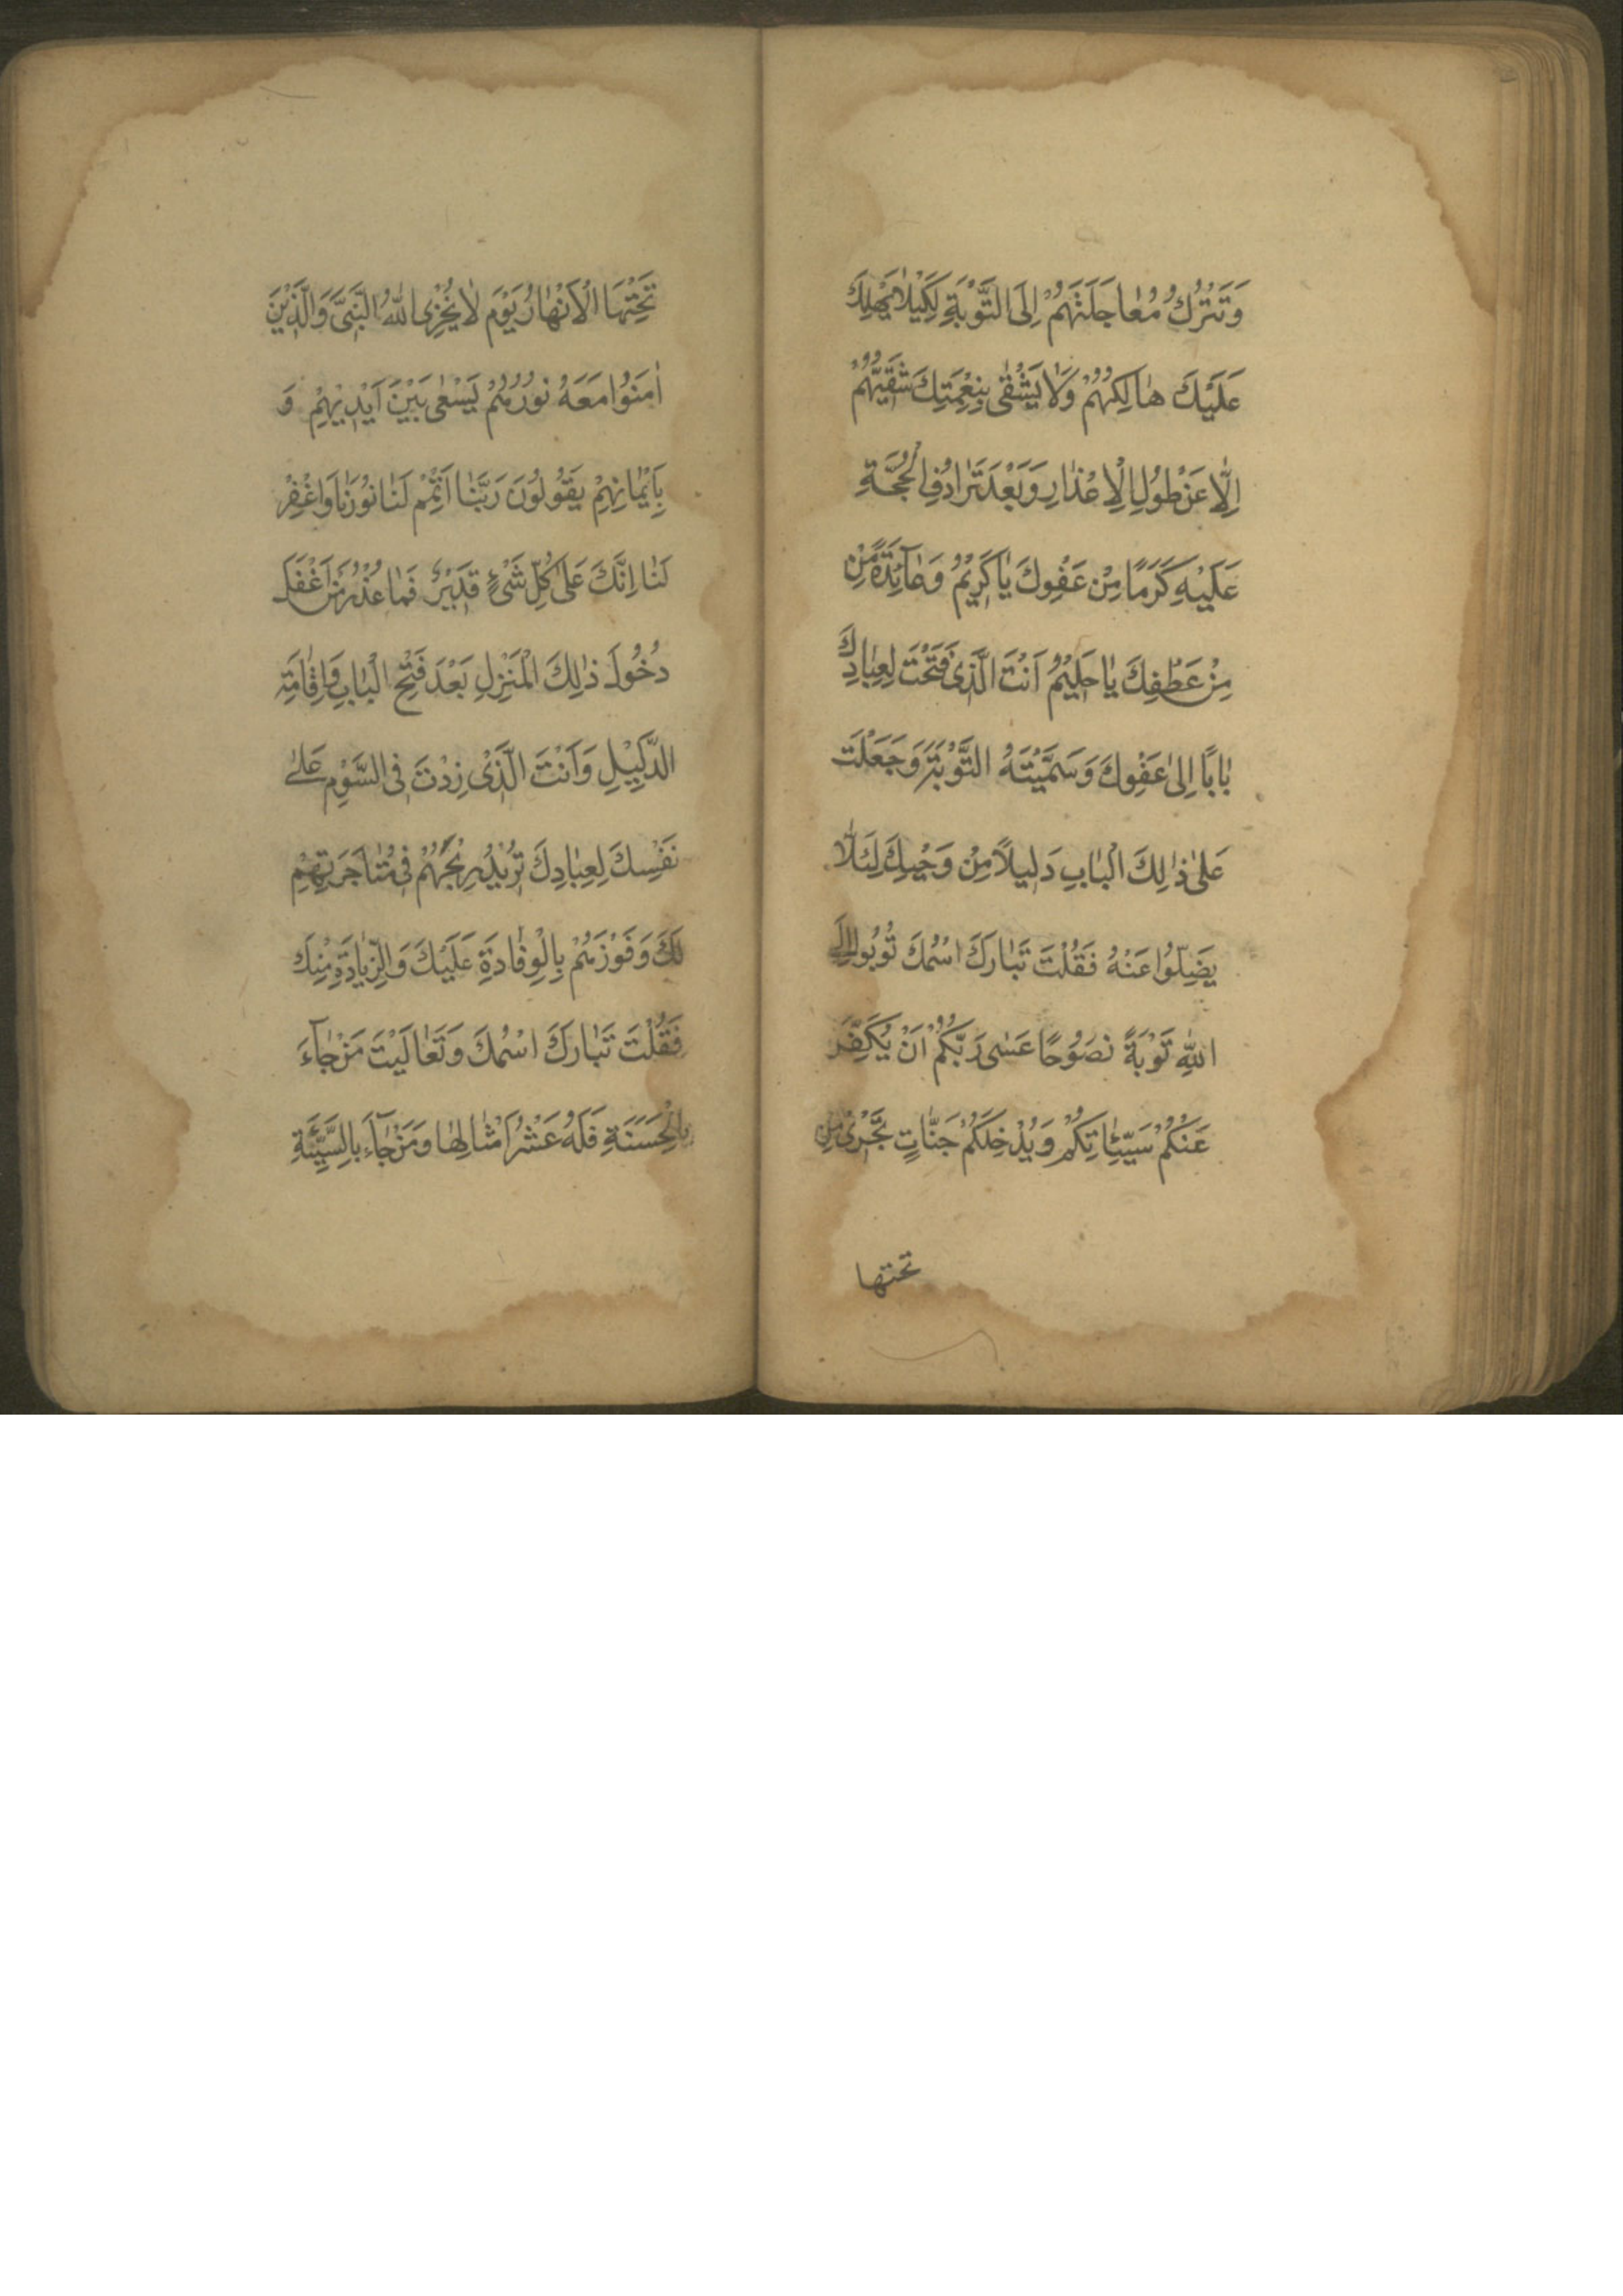 وَتَتْرُكُ مُعَاجَلَتَهُمْ اِلَى التَّوْبَةِ لِكَيْلَا يَهْلِكَ
عَلَيْكَ هَالِكُهُمْ وَلَا يَشْقٰى بِنِعْمَتِكَ شَقِيُّهُمْ
اِلَّا عَنْ طُولِ الْاِعْذَارِ وَبَعْدَ تَرَادُفِ الْحُجَّةِ
عَلَيْهِ كَرَمًا مِنْ عَفْوِكَ يَا كَرِيْمُ وَعَآئِدَةً مِنْ
مِنْ عَطْفِكَ يَا حَلِيْمُ اَنْتَ الَّذِى فَتَحْتَ لِعِبَادِكَ
بَابًا اِلٰى عَفْوِكَ وَسَمَّيْتَهُ التَّوْبَةَ وَجَعَلْتَ
عَلٰى ذٰلِكَ الْبَابِ دَلِيلًا مِنْ وَحْيِكَ لِئَلَّا
يَضِلُّوا عَنْهُ فَقُلْتَ تَبَارَكَ اسْمُكَ تُوبُوا اِلَى
اللّٰهِ تَوْبَةً نَصُوْحًا عَسٰى رَبُّكُمْ اَنْ يُكَفِّرَ
عَنْكُمْ سَيِّئَاتِكُمْ وَيُدْخِلَكُمْ جَنَّاتٍ تَجْرِىْ مِنْ
تحتها
تَحْتِهَا الْاَنْهَارُ يَوْمَ لَا يُخْزِى اللّٰهُ النَّبِىَّ وَالَّذِيْنَ
اٰمَنُوْا مَعَهُ نُوْرُهُمْ يَسْعٰى بَيْنَ اَيْدِيْهِمْ وَ
بِاَيْمَانِهِمْ يَقُوْلُوْنَ رَبَّنَا اَتْمِمْ لَنَا نُوْرَنَا وَاغْفِرْ
لَنَا اِنَّكَ عَلٰى كُلِّ شَىْءٍ قَدِيْرٌ فَمَا عُذْرُ مَنْ اَغْفَلَ
دُخُوْلَ ذٰلِكَ الْمَنْزِلِ بَعْدَ فَتْحِ الْبَابِ وَاِقَامَةِ
الدَّلِيْلِ وَاَنْتَ الَّذِىْ زِدْتَ فِى السَّوْمِ عَلٰى
نَفْسِكَ لِعِبَادِكَ تُرِيْدُ رِبْحَهُمْ فِى مُتَاجَرَتِهِمْ
لَكَ وَفَوْزَهُمْ بِالْوِفَادَةِ عَلَيْكَ وَالزِّيَادَةِ مِنْكَ
فَقُلْتَ تَبَارَكَ اسْمُكَ وَتَعَالَيْتَ مَنْ جَآءَ
بِالْحَسَنَةِ فَلَهُ عَشْرُ اَمْثَالِهَا وَمَنْ جَآءَ بِالسَّيِّئَةِ